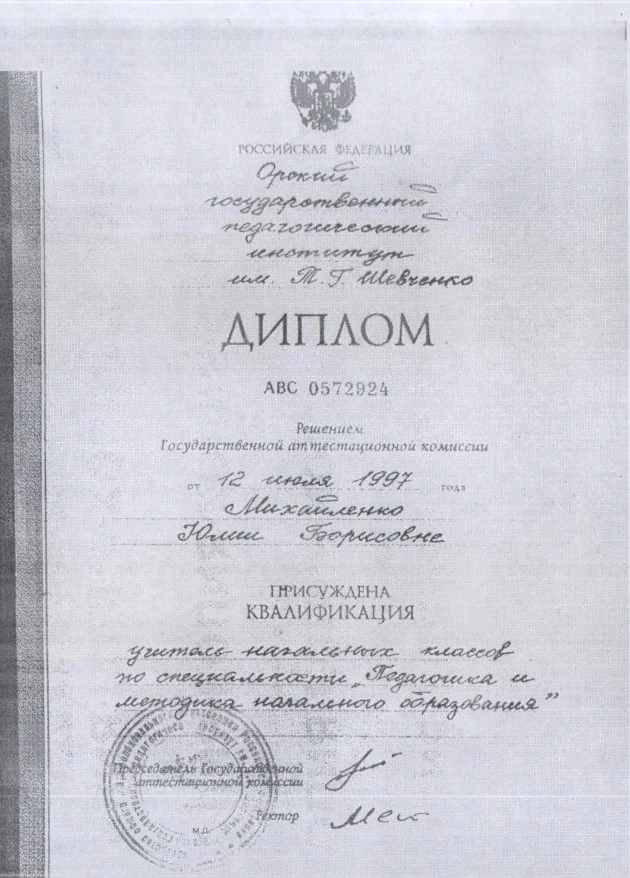 РОССИЙСКАЯ ФЕДЕРАЦИЯ
Орский
государственный
педагогический
институт
им. Т. Г. Шевченко
ДИПЛОМ
АВС 0572924
Решением
Государственной аттестационной комиссии
от 12 июля 1997 года
Михайленко
Юлии Борисовне
ПРИСУЖДЕНА
КВАЛИФИКАЦИЯ
учитель начальных классов
по специальности „Педагогика и
методика начального образования”
Председатель Государственной
аттестационной комиссии
Ректор
М.П.